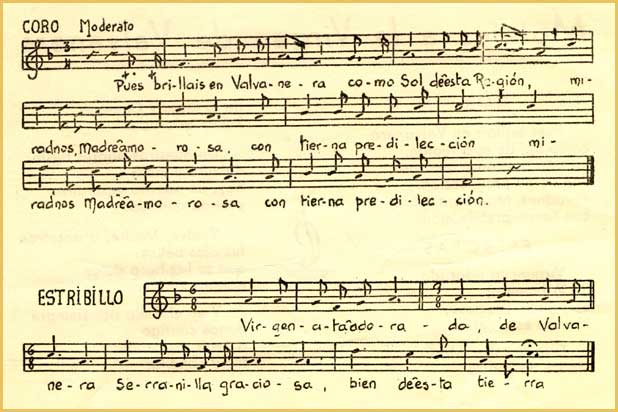 CORO Moderato
Pues bri-llais en Valva-ne-ra co-mo Sol de esta Región, mi-
radnos, Madre amo-ro-sa, con tier-na pre-di-lec-ción mi-
radnos Madre a-mo-ro-sa con tier-na pre-di-lec-ción.
ESTRIBILLO
Vir-gen-a-ta adora-da de Valva-
ne-ra Se-rra-ni-lla gra-cio-sa, bien de es-ta tie-rra